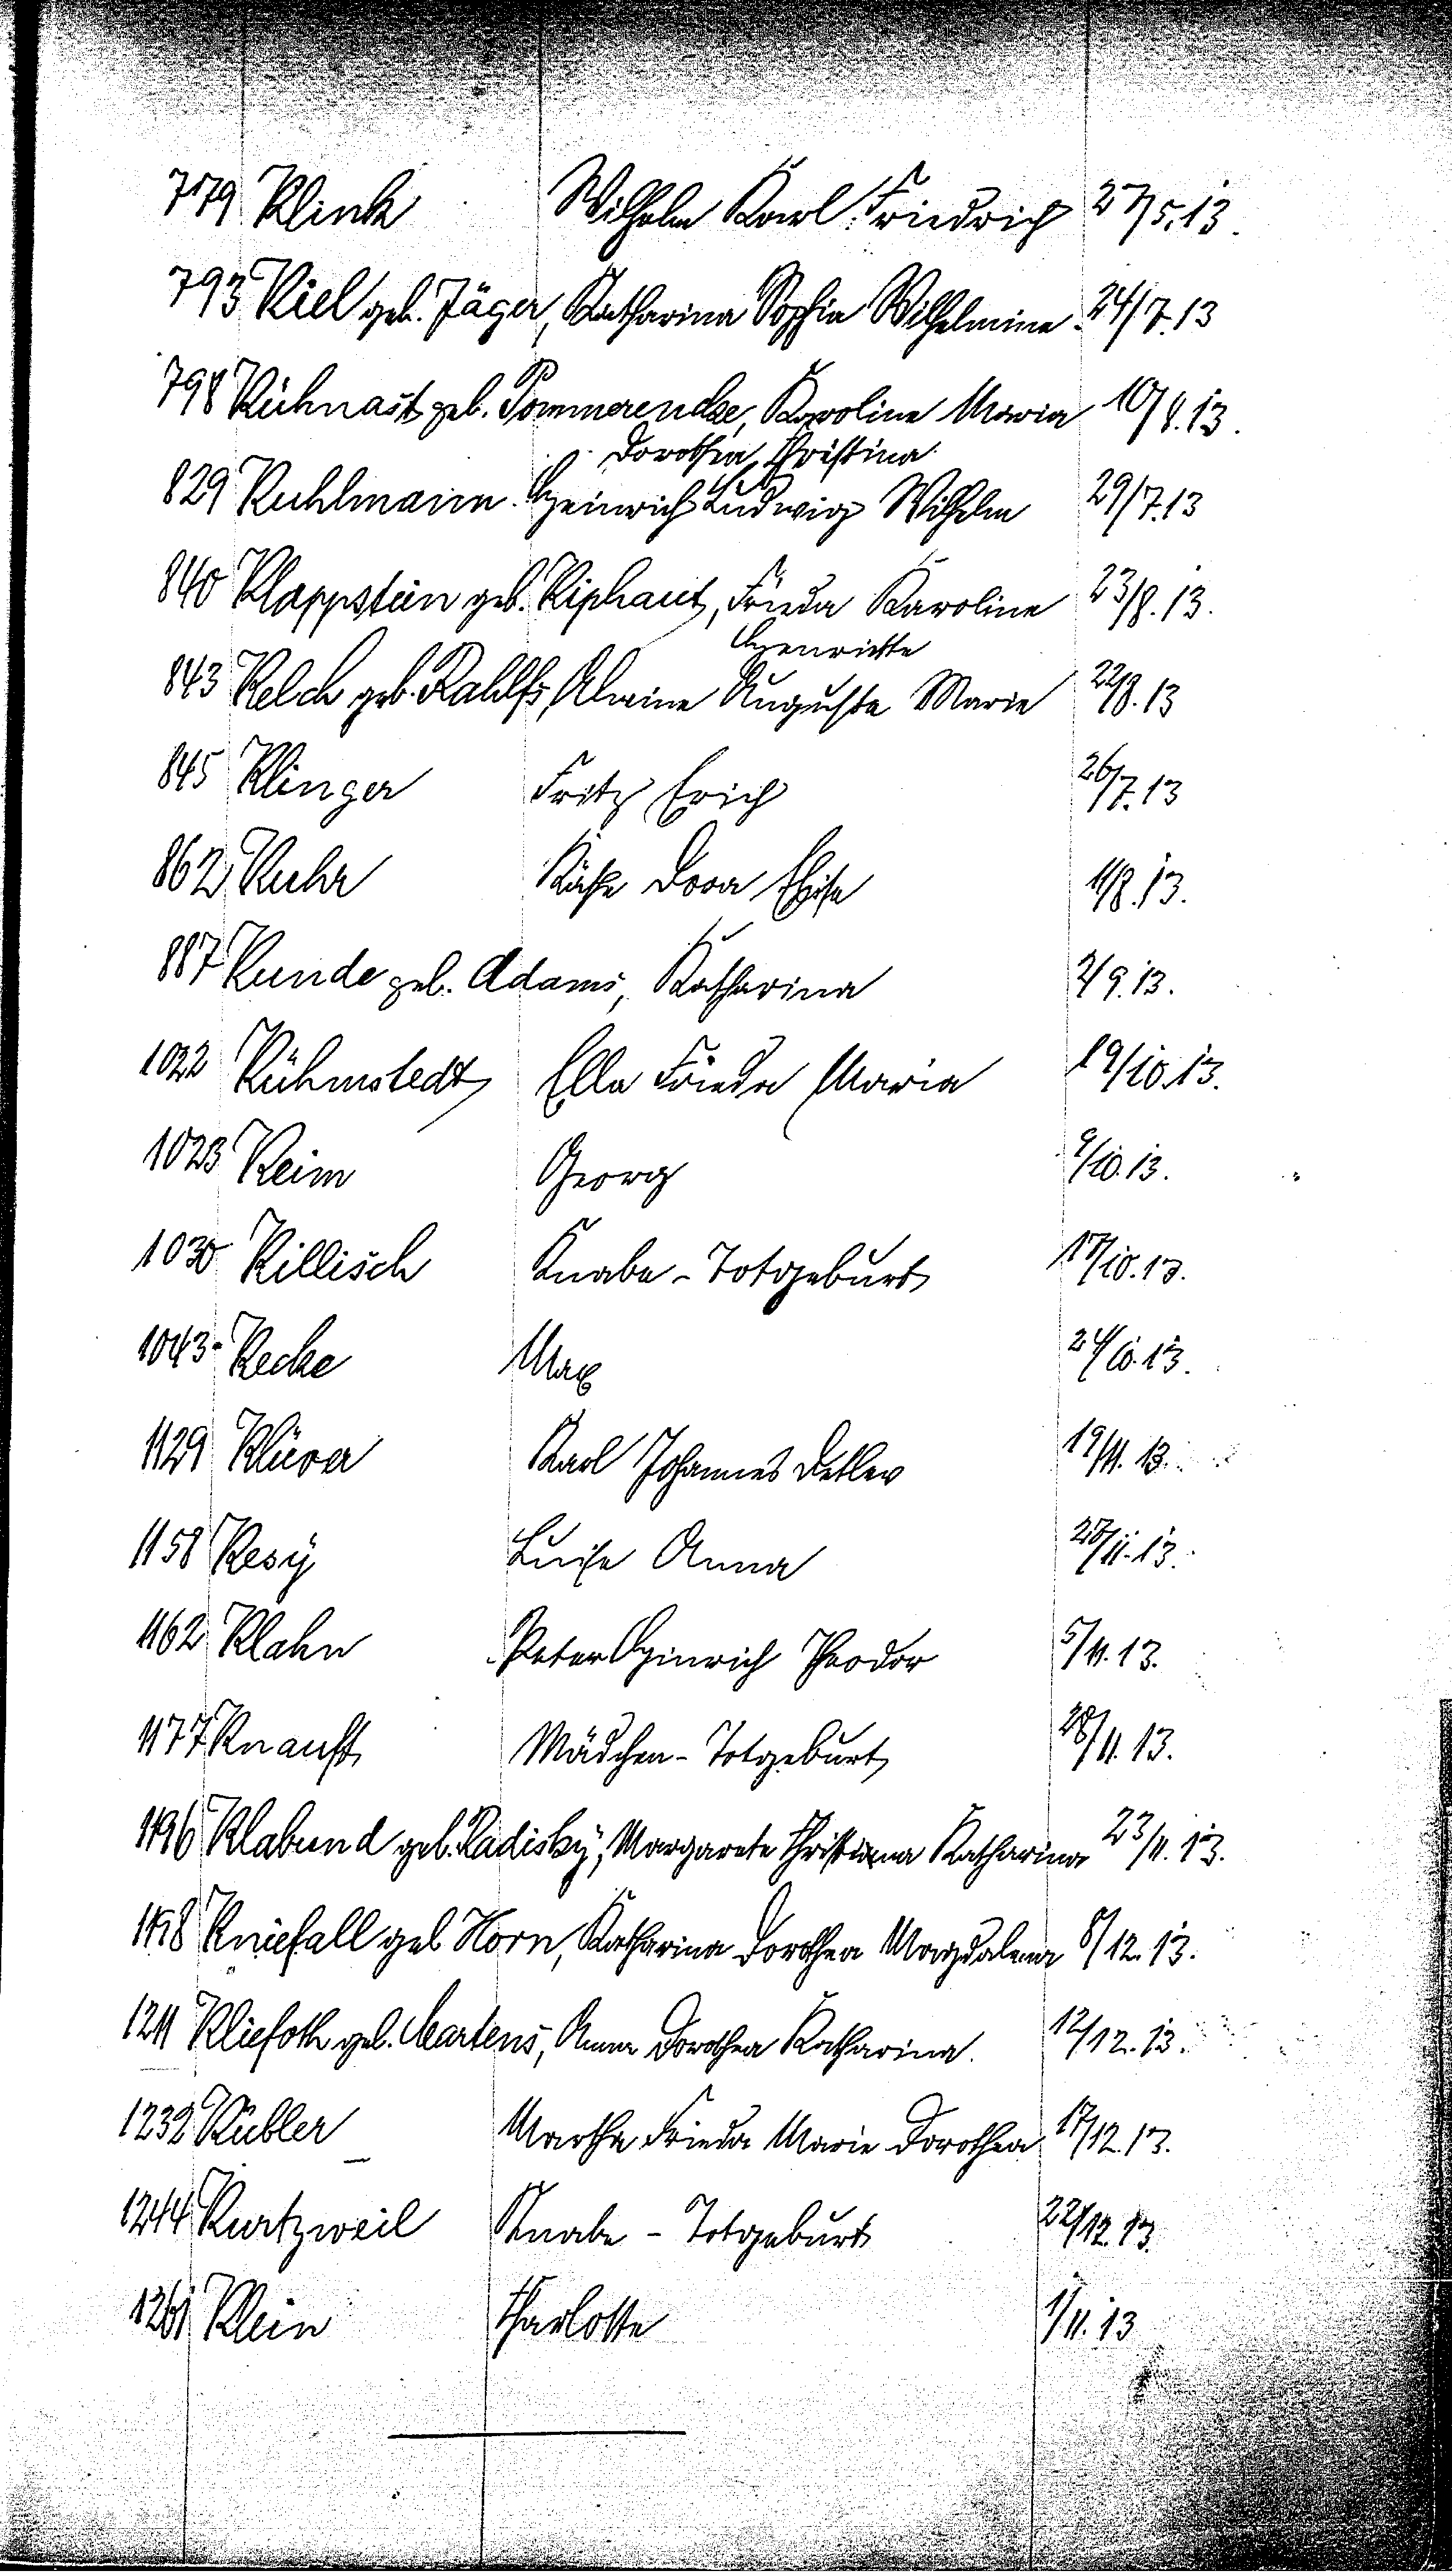 779 Klink Wilhelm Karl Friedrich 27/5.13.
793 Kiel geb. Jäger, Katharina Sophia Wilhelmine. 24/7.13
798 Kühnast geb. Pommerencke, Karoline Maria 10/8.13.
Dorothea Christina
829 Kuhlmann. Heinrich Ludwig Wilhelm 29/7.13
840 Klappstein geb. Kiphaut, Frieda Karoline 23/8.13.
Henriette
843 Kelch geb. Rahlfs, Alwine Auguste Marie 22/8.13
845 Klinger Fritz Erich 26/7.13
862 Kuhr Käthe Dora Elise 11/8.13.
887 Kunde geb. Adams, Katharina 2/9.13.
1022 Kühmstedt Ella Frieda Maria 19/10.13.
1023 Keim Georg 9/10.13.
1030 Killisch Knabe - Totgeburt 17/10.13.
1043 Kecke Max 24/10.13.
1129 Klüver Karl Johannes Detlev 19/11.13.
1158 Kesÿ Luise Anna /11.13.
1162 Klahn Peter Hinrich Theodor 5/11.13.
1177 Knauft Mädchen - Totgeburt 28/11.13.
1196 Klabund geb. Radiskÿ, Margarete Christiana Katharina 23/11.13.
1198 Kniefall geb Horn, Katharina Dorothea Magdalena 8/12.13.
1211 Kliefoth geb. Martens, Anna Dorothea Katharina. 12/12.13.
1232 Kübler Martha Frieda Marie Dorothea 17/12.13.
1244 Kurtzweil Knabe - Totgeburt 22/12.13.
1261 Klein Charlotte 1/11.13